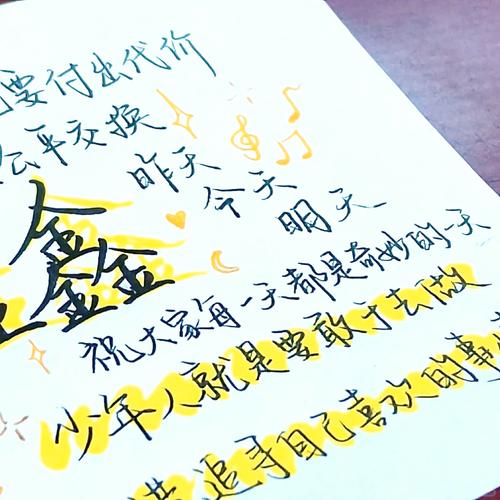 要付出代价
公平交换
昨天
今天
明天
鑫
祝大家每一天都是奇妙的一天
少年人就是要敢于去做
追寻自己喜欢的事